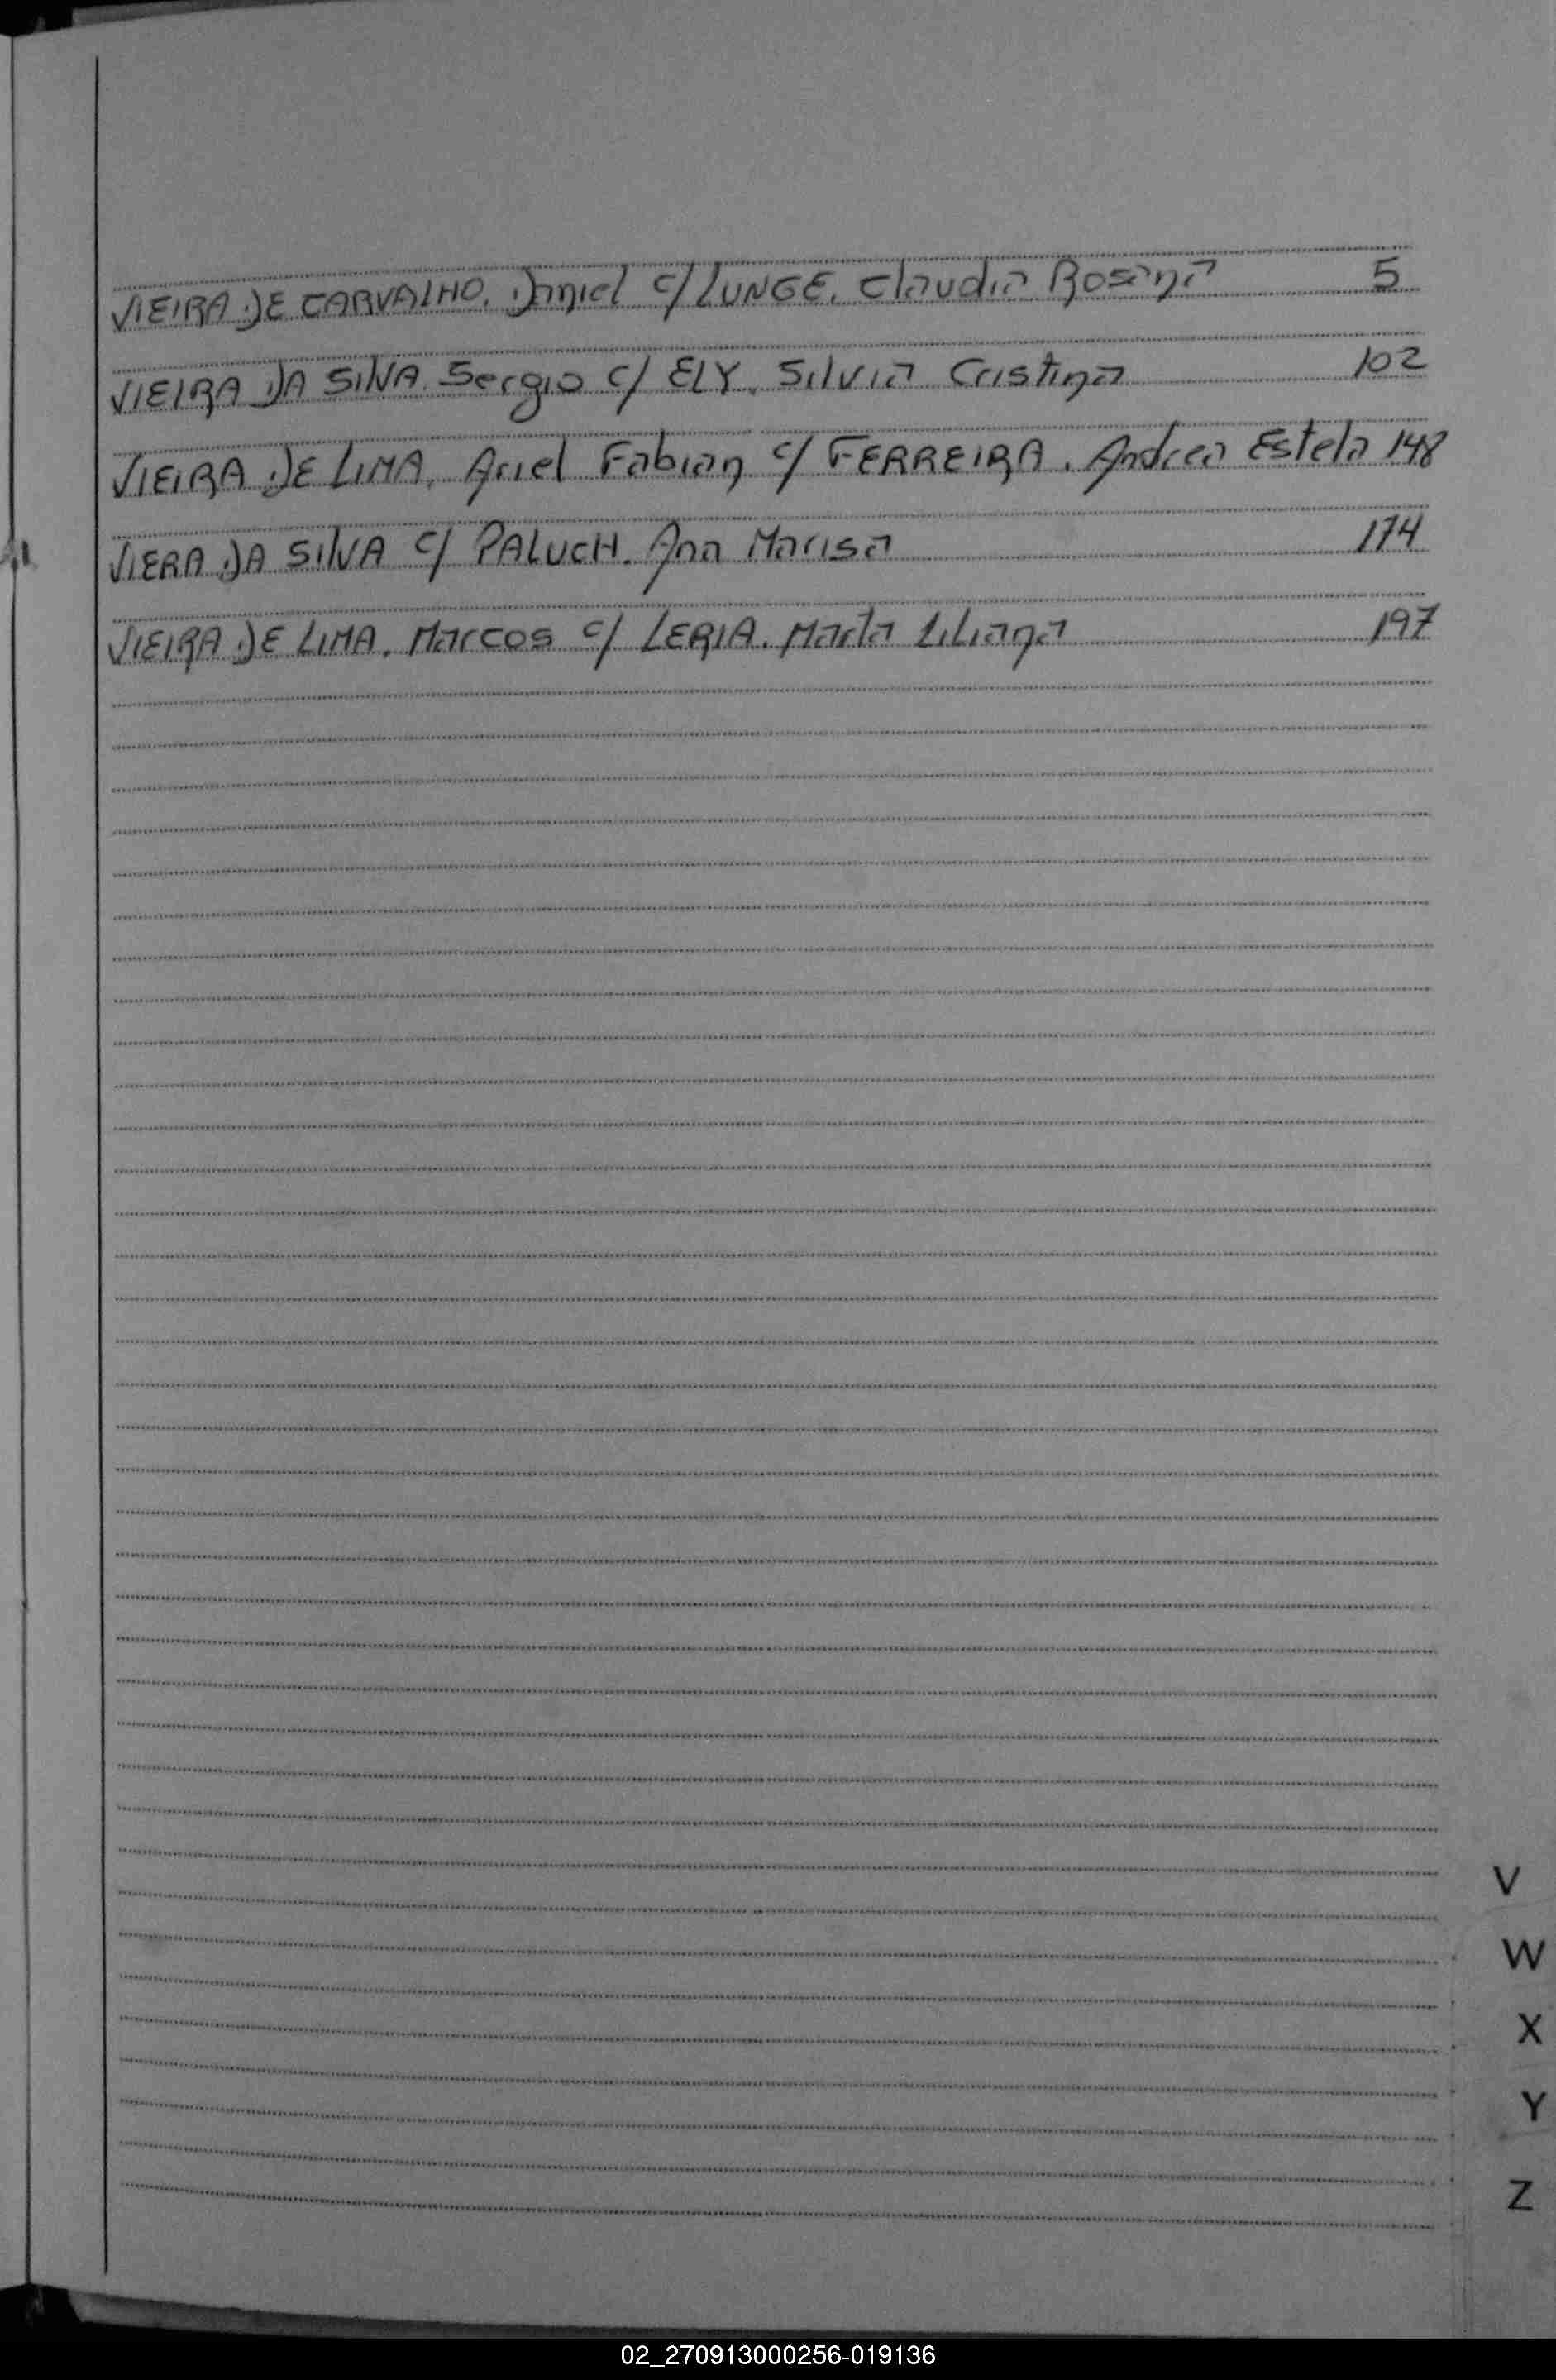 VIEIRA DE CARVALHO, Daniel c/ LUNGE, Claudia Rosana 5
VIEIRA DA SILVA, Sergio c/ ELY, Silvia Cristina 102
VIEIRA DE LIMA, Ariel Fabian c/ FERREIRA, Andrea Estela 148
VIERA DA SILVA c/ PALUCH, Ana Marisa 174
VIEIRA DE LIMA, Marcos c/ LERIA, Marta Liliana 197
V
W
X
Y
Z
02_270913000256-019136